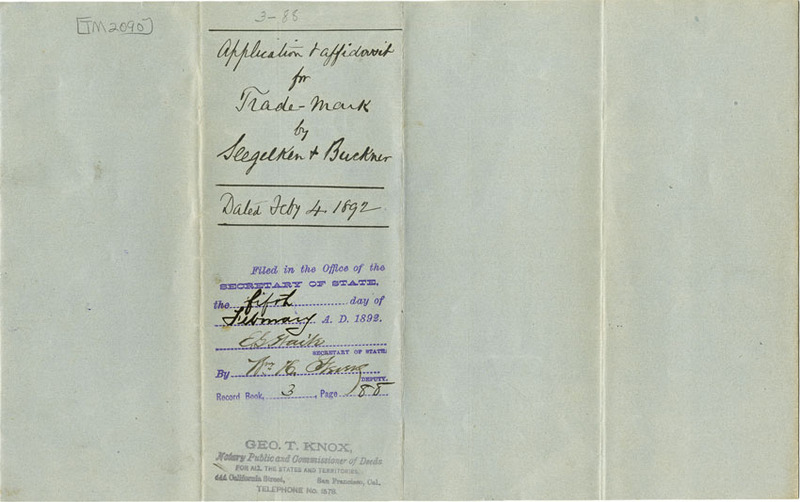 [TM2090]
3-88
Application & affidavit
for
Trade-Mark
by
Seegelken & Buckner
Dated Feby 4. 1892
Filed in the Office of the
SECRETARY OF STATE,
the fifth day of
February A. D. 1892.
E G Waite
SECRETARY OF STATE
By Wm H.
DEPUTY.
Record Book, 3, Page 88
GEO. T. KNOX,
Notary Public and Commissioner of Deeds
FOR ALL THE STATES AND TERRITORIES,
California Street, San Francisco, Cal.
TELEPHONE No.